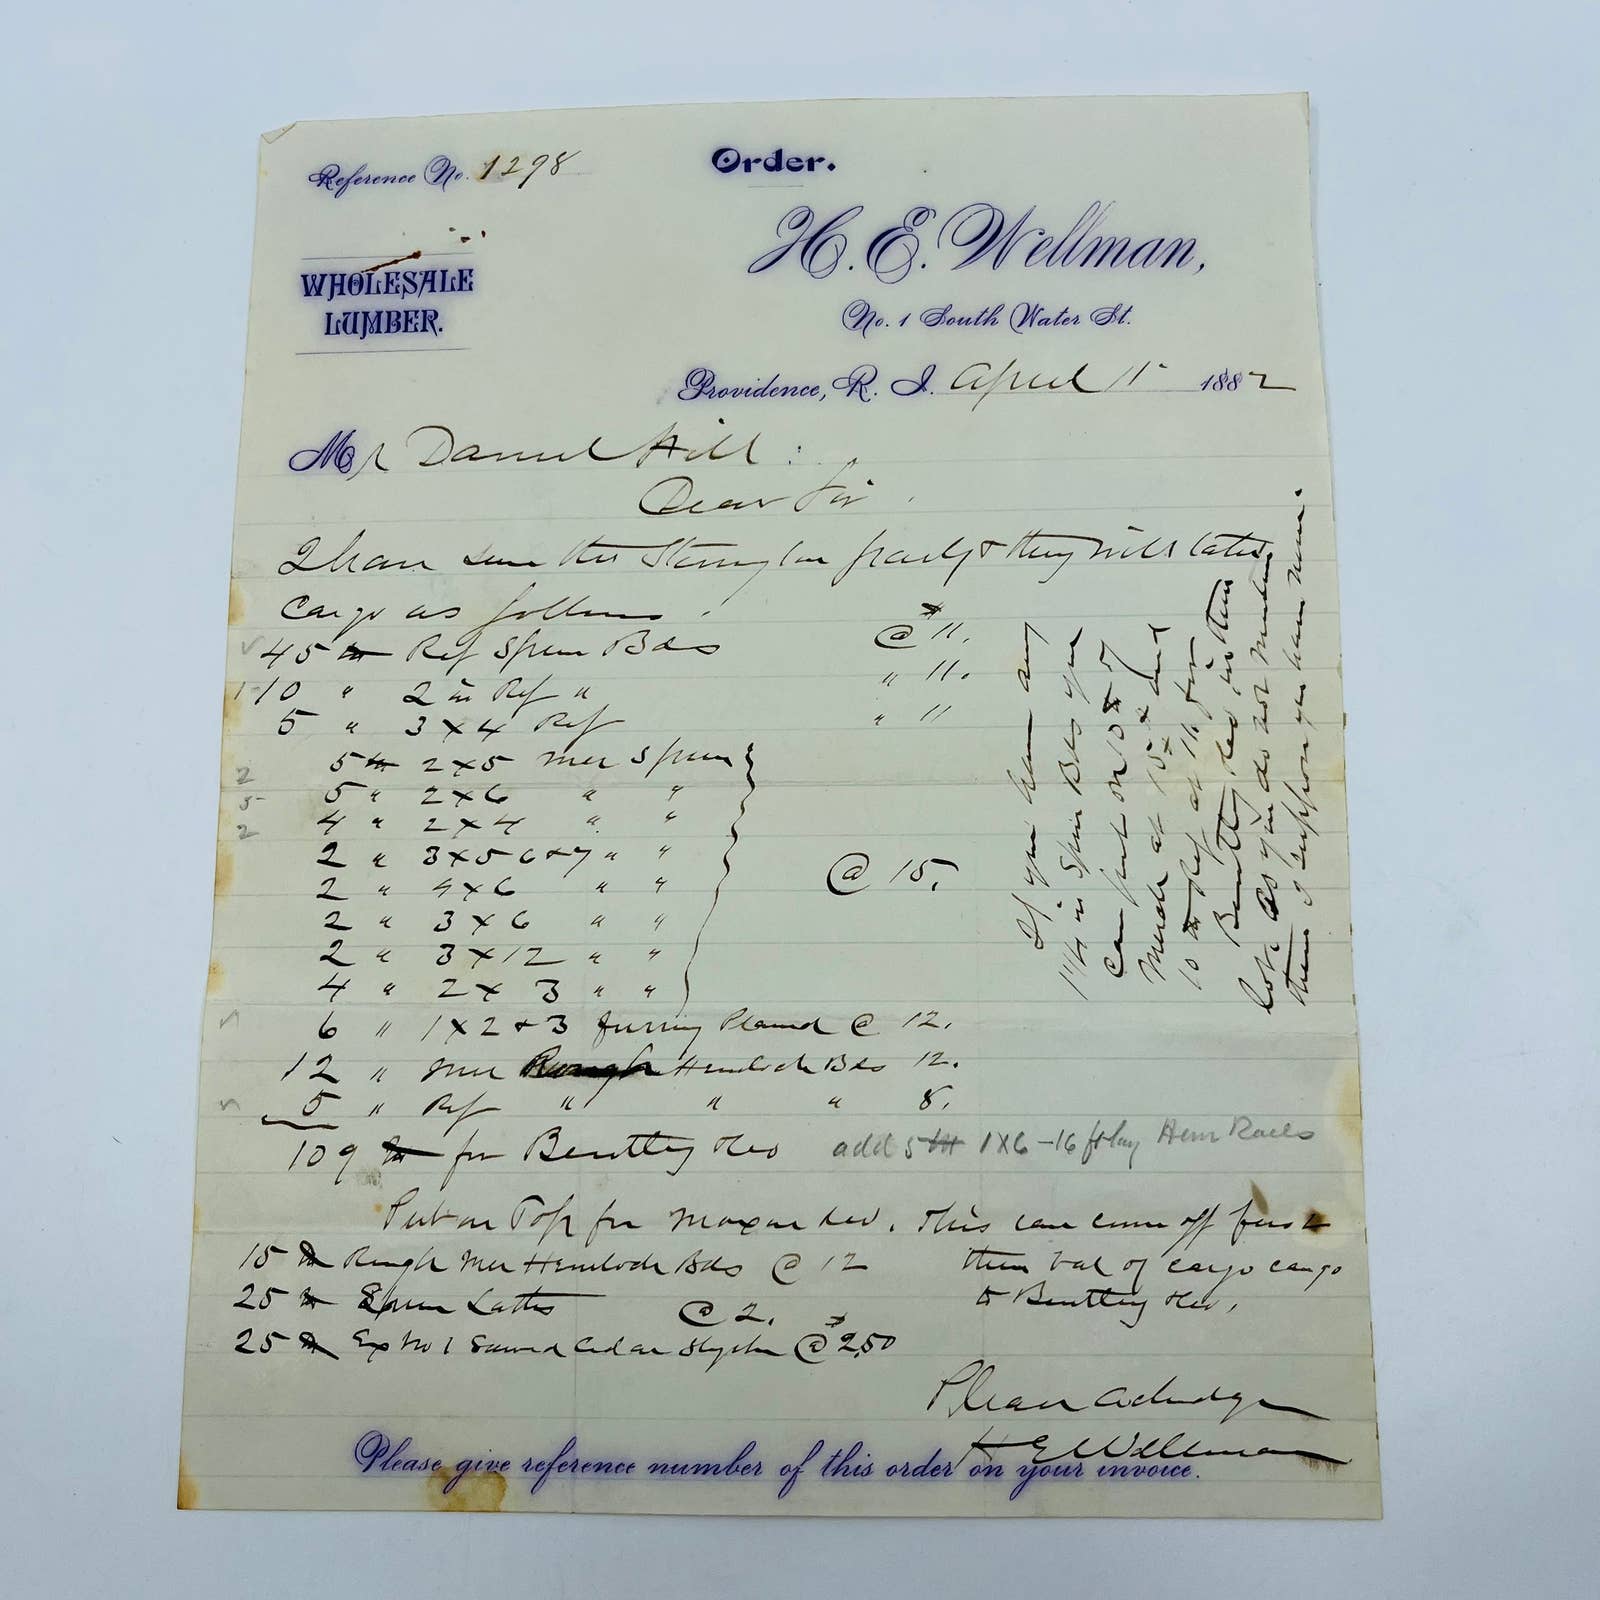 Reference No. 1298
Order.
H. E. Wellman,
WHOLESALE
LUMBER.
No. 1 South Water St.
Providence, R. I. April 11 1882
Mr Daniel Hill :
Dear Sir
I have seen the Stonington party & they will take
Cargo as follows
45 m Ref Spruce Bds @ $11.
10 " 2 in Ref " " 11.
5 " 3 x 4 Ref " 11
2 5 m 2 x 5 Mer Spruce
5 5 " 2 x 6 " "
2 4 " 2 x 4 " "
2 " 3 x 5 6 & 7 " "
2 " 4 x 6 " " @ 15.
2 " 3 x 6 " "
2 " 3 x 12 " "
4 " 2 x 3 " "
6 " 1 x 2 & 3 furring Planed @ 12.
12 " Mer Rough Hemlock Bds 12.
5 " Ref " " " 8.
109 m for Bentley
add 5 m 1 x 6 - 16 ft Hem
Put on Top for . This can come off first
15 m Rough Mer Hemlock Bds @ 12
then bal of cargo can go
25 m Spruce Laths @ 2.
to Bentley
25 m Ex No 1 Sawed Cedar @ $2.50
Please acknowledge
H E Wellman
Please give reference number of this order on your invoice.
If you have any
1 1/4 in Spruce Bds you
can put on 10 m of
Merch at 15 and
10 m Ref at 11 for
Bentley in this
lot. As you do not mention
them I suppose you have none.